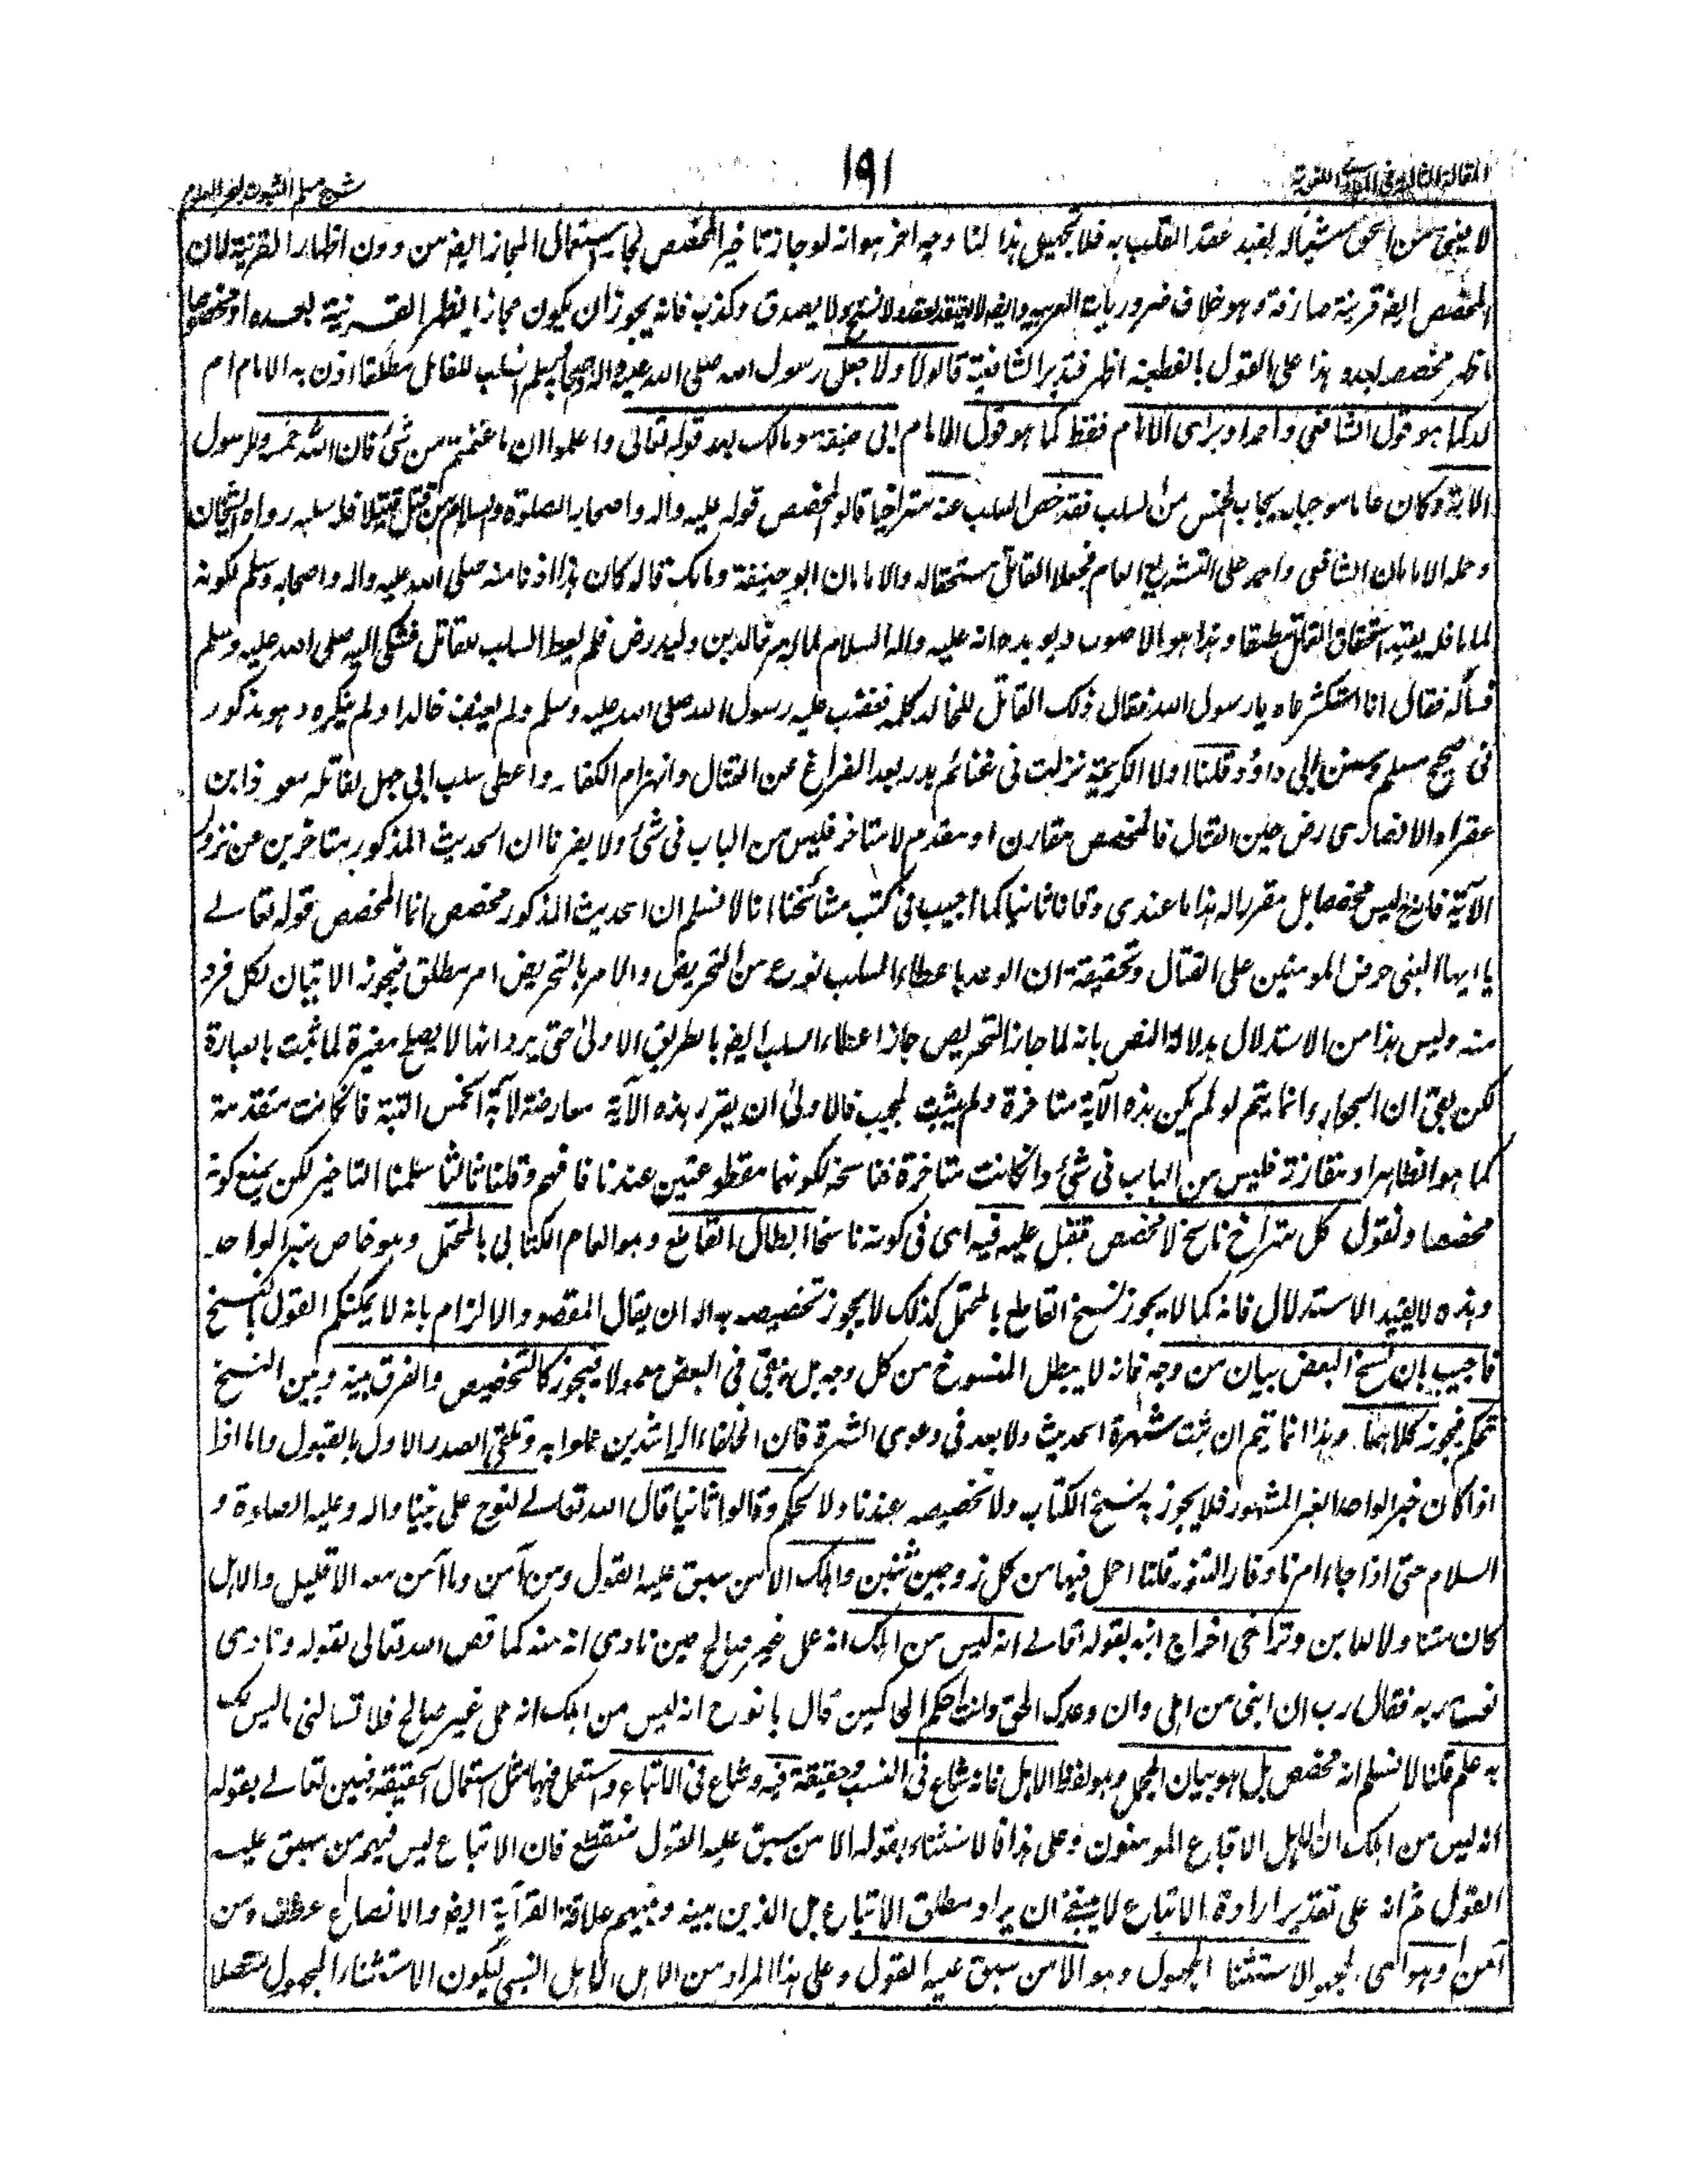 المقالة الثالثة في المبادي اللغوية ١٩١ شرح مسلم الثبوت لبحر العلوم
لا ينبغي من الحق سبحانه بعيد عقد القلب به فلا تجهيل هذا لنا وجه اخر هو انه لو جاز تاخير المخصص لجاز استعمال المجاز ايض من دون اظهار القرينة لان
المخصص ايض قرينة صارفة وهو خلاف ضروريات العربية وايض لا ينعقد عقد ولا فسخ ولا يصدق وكذب فانه يجوز ان يكون مجازا يظهر القرينة بعده او مخصوصا
يظهر مخصصه بعده هذا على القول بالقطعية اظهر فتدبر الشافعية قالوا اولا جعل رسول الله صلى الله عليه واله واصحابه وسلم السلب للقاتل مطلقا اذن به الامام ام
لا كما هو قول الشافعي واحمد او براى الامام فقط كما هو قول الامام ابي حنيفة ومالك بعد قوله تعالى واعلموا ان ما غنمتم من شئ فان لله خمسه وللرسول
الآية وكان عاما موجبا لايجاب الخمس من السلب فقد خص السلب عنه متراخيا قالوا المخصص قوله عليه واله واصحابه الصلوة والسلام من قتل قتيلا فله سلبه رواه الشيخان
وحمله الامامان الشافعي واحمد على التشريع العام فجعلا القاتل مستحقا له والامامان ابو حنيفة ومالك قالا كان هذا اذنا منه صلى الله عليه واله واصحابه وسلم لكونه
اماما فلا يفيد استحقاق القاتل مطلقا وهذا هو الاصوب ويويده انه عليه واله السلام لما امر خالد بن وليد رض فلم يعط السلب للقاتل فشكى اليه صلى الله عليه وسلم
فساله فقال انا استكثرناه يا رسول الله فقال ذلك القاتل للخالد كلمة فغضب عليه رسول الله صلى الله عليه وسلم ولم يعنف خالدا ولم ينكره وهو مذكور
في صحيح مسلم وسنن ابي داود وقلنا اولا الكريمة نزلت في غنائم بدر بعد الفراغ عن القتال وانهزام الكفار واعطى سلب ابي جهل لقاتله معوذ ابن
عفراء الانصاري رض حين القتال فالمخصص مقارن او مقدم لا متاخر فليس من الباب في شئ ولا يضرنا ان الحديث المذكور متاخرين عن نزول
الآية فانه ليس مخصصا بل مقررا له هذا ما عندي وقلنا ثانيا كما اجيب في كتب مشائخنا انا لا نسلم ان الحديث المذكور مخصص انما المخصص قوله تعالے
يا ايها النبي حرض المومنين على القتال وتحقيقه ان الوعد باعطاء السلب نوع من التحريض والامر بالتحريض امر مطلق فيجوز الاتيان لكل فرد
منه وليس هذا من الاستدلال بدلالة النص بانه لما جاز التحريض جاز اعطاء السلب ايض بالطريق الاولى حتى يرد انها لا يصلح مغيرة لما ثبت بالعبارة
لكن بقي ان الجواب انما يتم لو لم يكن هذه الآية متاخرة ولم يثبت المجيب فالاولى ان يقرر بهذه الآية معارضة لآية الخمس البتة فان كانت متقدمة
كما هو الظاهر او مقارنة فليس من الباب في شئ وان كانت متاخرة فناسخة لكونهما مقطوعتين عندنا فافهم وقلنا ثالثا سلمنا التاخير لكن يمنع كونه
مخصصا ونقول كل متراخ ناسخ لا مخصص فنقل عليه فيه اى في كونه ناسخا ابطال القاطع وهو العام الكتابي بالمحتمل وهو خاص خبر الواحد
وهذه لا يفيد الاستدلال فانه كما لا يجوز نسخ القاطع بالمحتمل كذلك لا يجوز تخصيصه به الا ان يقال المقصود الالزام بانه لا يمكنكم القول بالنسخ
فاجيب بان نسخ البعض بيان من وجه فانه لا يبطل المنسوخ من كل وجه بل يبقى في البعض معمولا فيجوز كالتخصيص والفرق بينه وبين النسخ
تحكم فيجوز كلاهما. وهذا انما يتم ان ثبت شهرة الحديث ولا بعد في دعوى الشهرة فان الخلفاء الراشدين عملوا به وتلقى الصدر الاول بالقبول واما اذا
اذا كان خبر الواحد الغير المشهور فلا يجوز به نسخ الكتاب ولا تخصيصه عندنا ولا تحكم وقالوا ثانيا قال الله تعالے لنوح على نبينا واله وعليه الصلوة و
السلام حتى اذا جاء امرنا وفار التنور قلنا احمل فيها من كل زوجين اثنين واهلك الا من سبق عليه القول ومن آمن وما آمن معه الا قليل والاهل
كان متناولا للابن وتراخى اخراج ابنه بقوله تعالے انه ليس من اهلك انه عمل غير صالح حين نادى انه منه كما قص الله تعالى بقوله ونادى
نوح ربه فقال رب ان ابني من اهلي وان وعدك الحق وانت احكم الحاكمين قال يا نوح انه ليس من اهلك انه عمل غير صالح فلا تسالني ما ليس لك
به علم قلنا لا نسلم انه مخصص بل هو بيان المجمل وهو لفظ الاهل فانه شاع في النسب وحقيقة فيه وشاع في الاتباع واستعمل فيها مثل استعمال الحقيقة فبين تعالے بقوله
انه ليس من اهلك ان الاهل الاتباع المومنون وعلى هذا فالاستثناء بقوله الا من سبق عليه القول منقطع فان الاتباع ليس فيهم من سبق عليه
القول ثم انه على تقدير ارادة الاتباع لا ينبغي ان يراد مطلق الاتباع بل الذين بينه وبينهم علاقة القرابة ايض والا لضاع عطف ومن
آمن او هو النسبي لجهو الاستثناء المجهول وهو الا من سبق عليه القول وعلى هذا المراد من الاهل الاهل النسبي ليكون الاستثناء المجهول متصلا